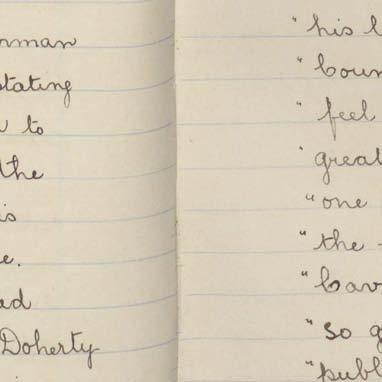 rman
stating
to
the
is
e.
ad
Doherty
" his
"
" feel
" great
" one
" the
"
" so g
" publ